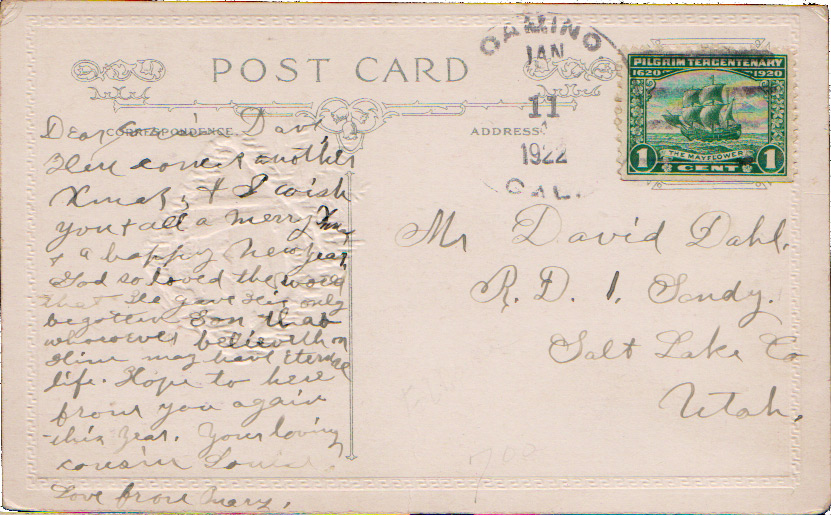 POST CARD
CORRESPONDENCE
ADDRESS
CAMINO
JAN
11
1922
CAL.
PILGRIM TERCENTENARY
1620 1920
THE MAYFLOWER
1 CENT 1
Dear Cousin Dave,
Here comes another
Xmas, & I wish
you & all a merry Xmas
& a happy New Year,
God so loved the world
that He gave His only
begotten Son that
whosoever believeth on
Him may have eternal
life. Hope to here
from you again
this Year. Your loving
cousin Louise.
Love from Mary.
Mr David Dahl.
R. D. 1. Sandy.
Salt Lake Co
Utah.
700